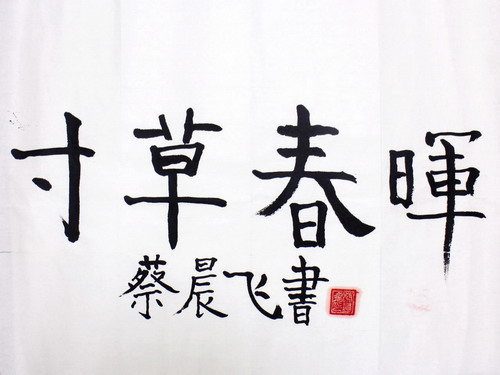 寸草春暉
蔡晨飞書